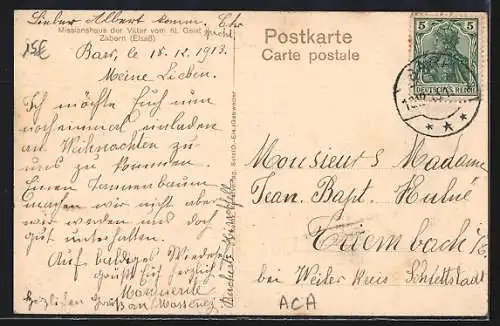 Lieber Albert komm. Ehr
Missionshaus der Väter vom hl. Geist
Zabern (Elsaß)
15E
Barr, le 18.12.1913.
Meine Lieben.
Ich möchte Euch nun
noch einmal einladen
an Weihnachten zu
uns zu kommen.
Einen Tannenbaum
machen wir nicht aber
wir werden uns doch
gut unterhalten.
Auf baldiges Wiedersehn
grüßt Euch herzlich
Marguerite
Herzlichen Gruß an
Postkarte
Carte postale
5 5
DEUTSCHES REICH
Monsieur & Madame
Jean. Bapt. Hulné
Triembach i/E.
bei Weiler Kreis Schlettstadt
ACA